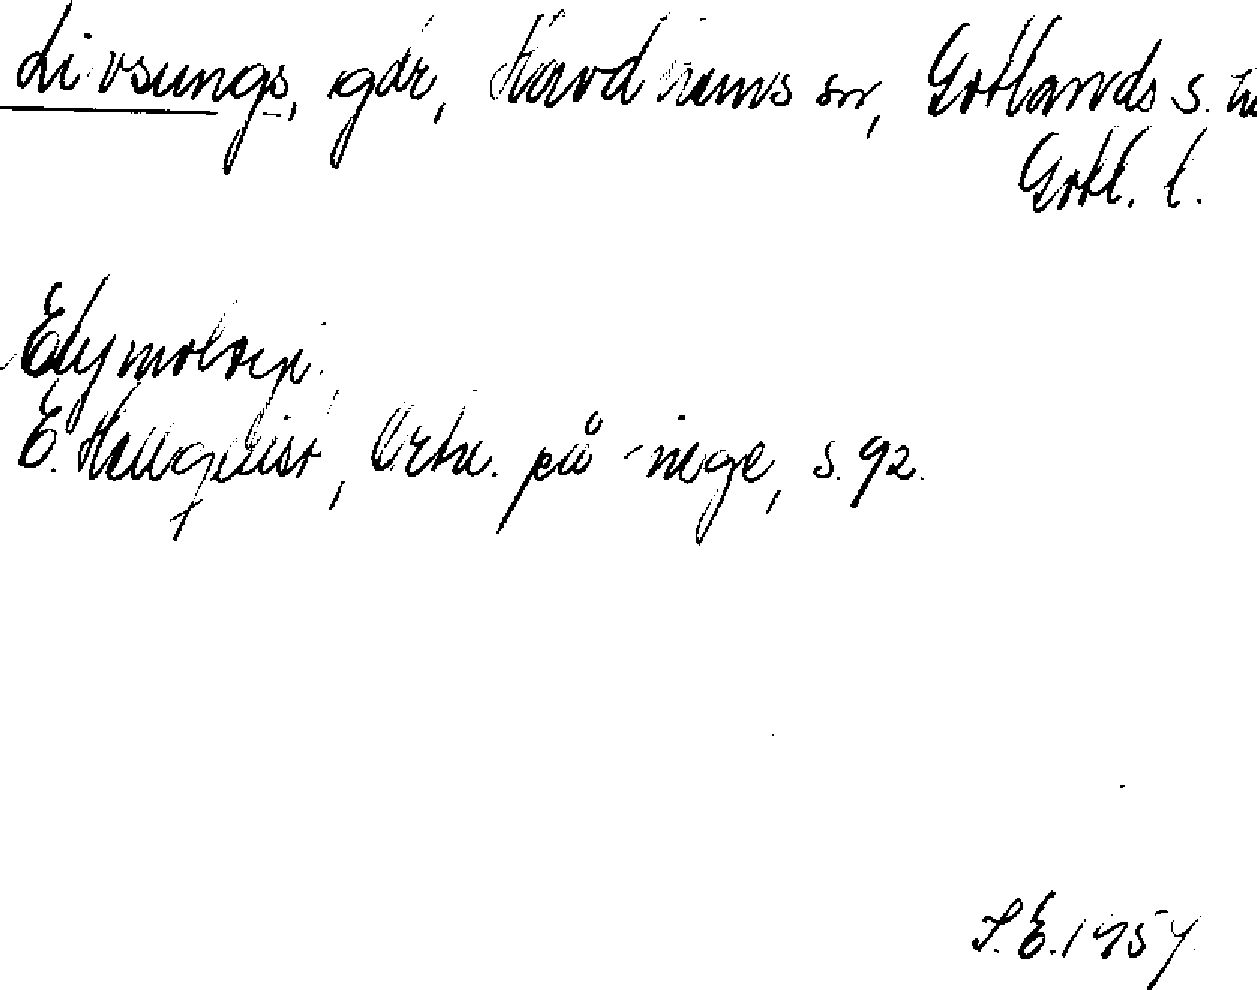 Livsungs, går, Havdhems sn, Gotlands s. hd
Gotl. l.
Etymologi.
E. Hellquist, Ortn. på -inge, s. 92.
S. E. 1954